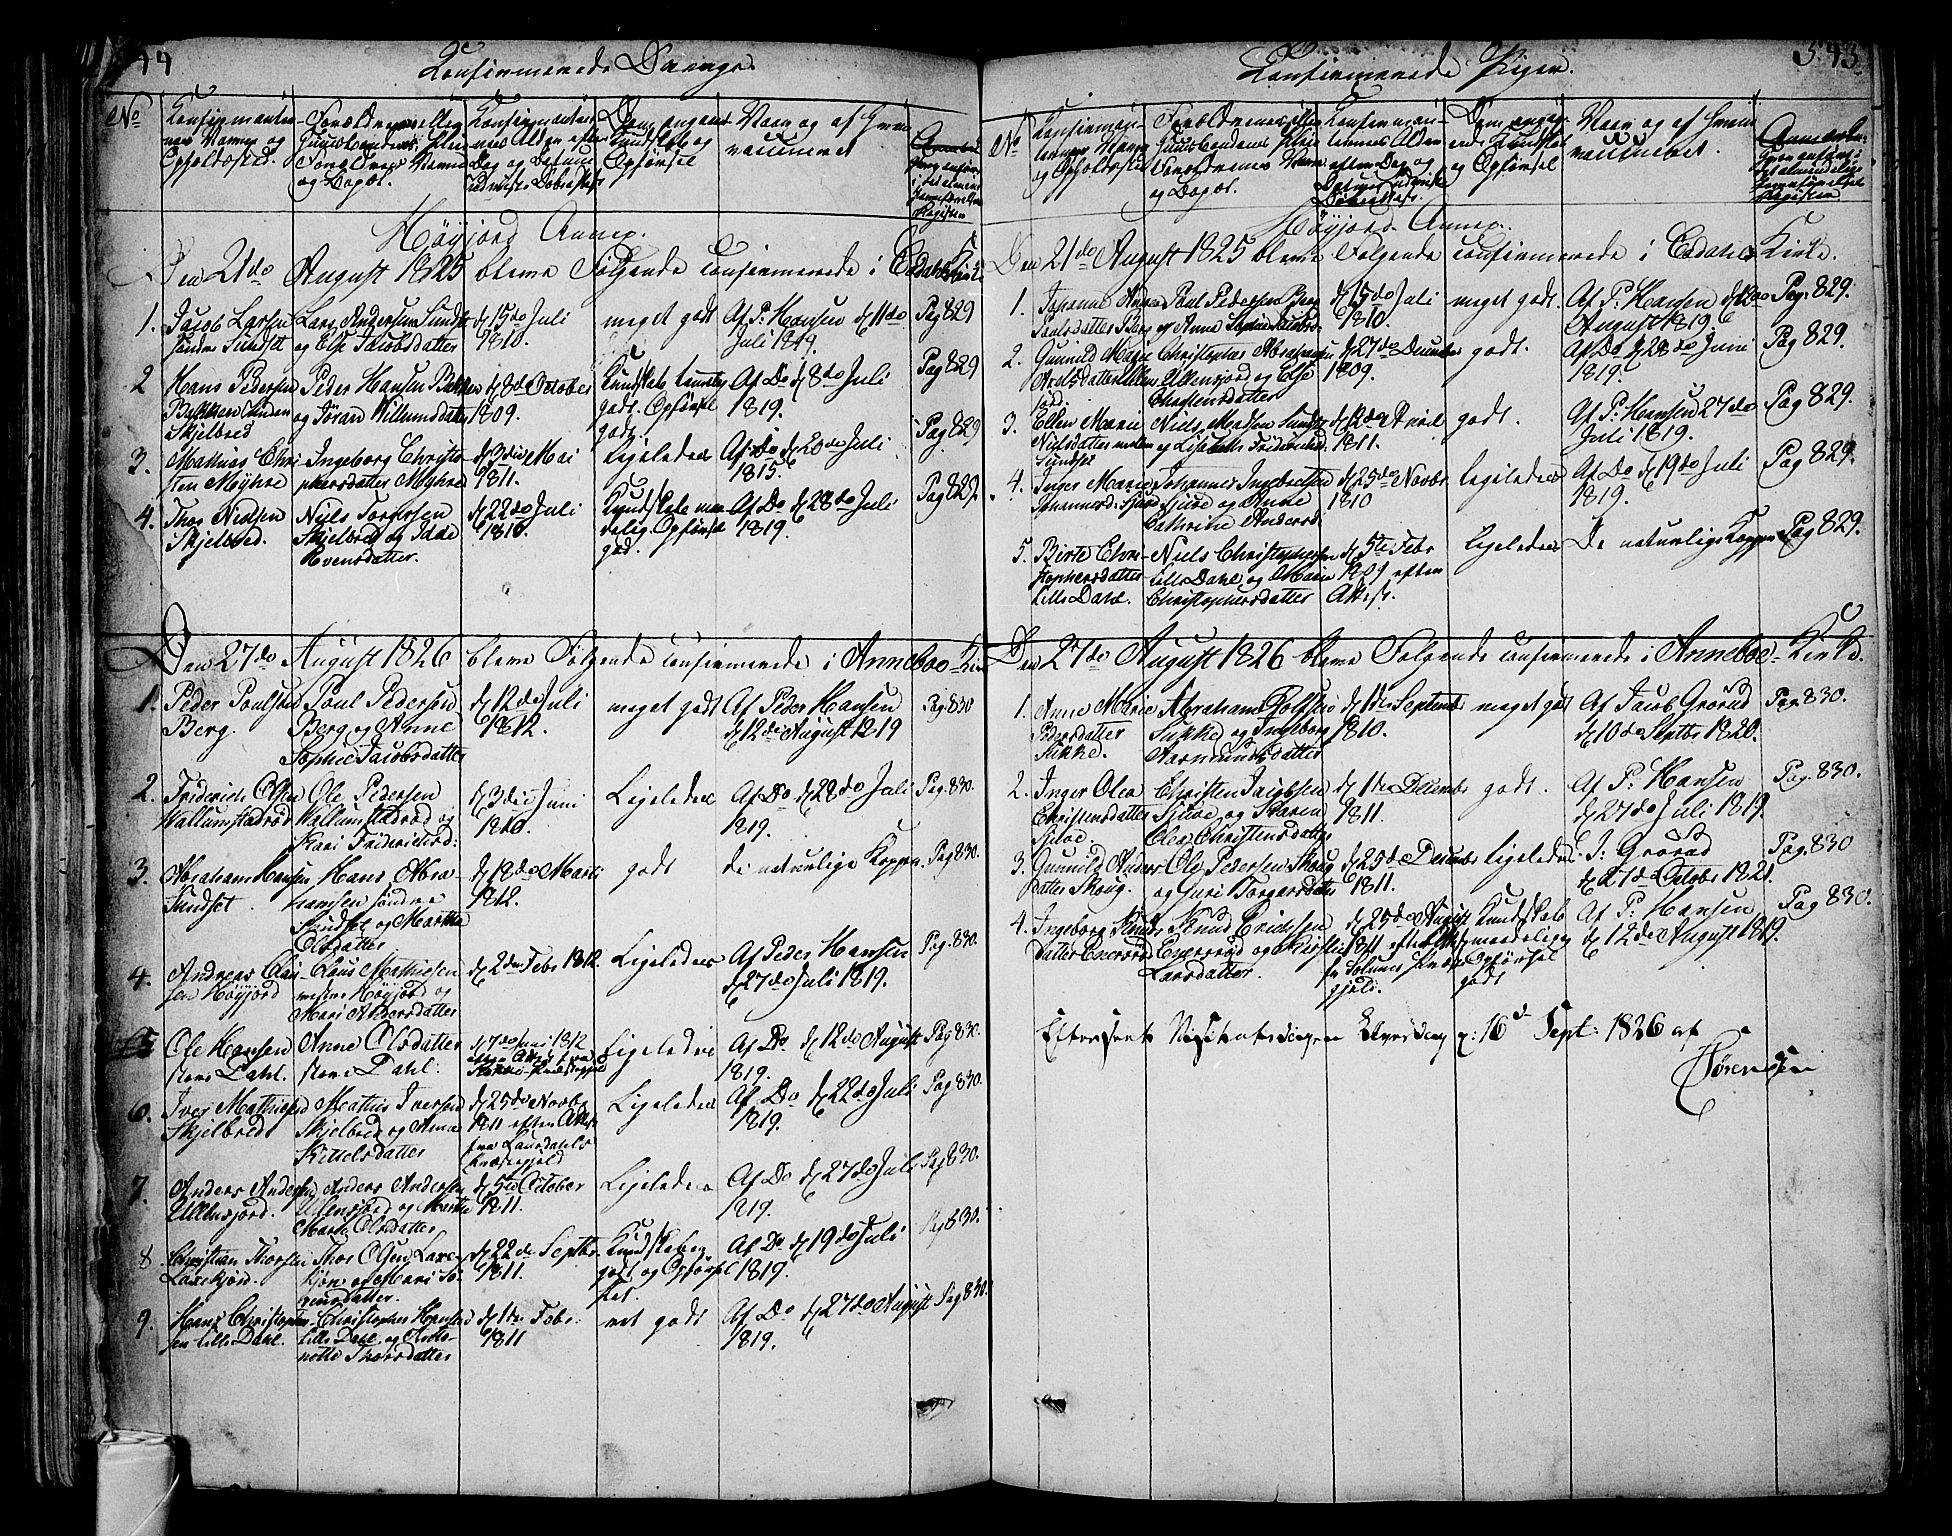 44
Confirmerede Drenge.
No
Confirmanter-
nes Navne og
Opholdssted.
Forældrenes eller
Huusbondens eller
Forældres Navne
og Bopæl.
Confirmanter-
nes Alder efter
Dag og Datum
Deres angaaende
Kundskab og
Opførsel
Naar og af hvem
vaccineret
Høyjord Annex.
Den 21de August 1825 bleve Følgende confirmerede i Eedahls Kirke
1. Jacob Larsen
søndre Sundset
Lars Andersen Sundset
og Else Jacobsdatter
d 15de Juli
1810.
meget godt
Af P: Hansen d 11de
Juli 1819.
Pag 829
2 Hans Pedersen
Bakken under
Skjelbred
Peder Hansen Bakken
og Jøran Willumsdatter
d 8de October
1809.
Kundskab temmelig
godt. Opførsel
god.
Af Do d 8de Juli
1819.
Pag 829
3. Mathias Chri-
sten Myhre
Ingeborg Christo-
phersdatter Myhre
d 3die Mai
1811.
Ligeledes
Af Do d 20de Juli
1815.
Pag 829
4. Thor Nielsen
Skjelbred.
Niels Torgersen
Skjelbred og Idde
Evensdatter.
d 22de Juli
1810.
Kundskab maa-
delig. Opførsel
god.
Af Do d 28de Juli
1819.
Pag 829.
Den 27de August 1826 bleve Følgende confirmerede i Anneboe Kirke
1. Peder Poulsen
Berg.
Poul Pedersen
Berg og Anne
Sophie Jacobsdatter
d 12de Juli
1812.
meget godt
Af Peder Hansen
d 12de August 1819
Pag. 830
2. Friderich Olsen
Wallumstadrød
Ole Pedersen
Wallumstadrød og
Kari Friderichsd:
d 3die Juni
1810.
Ligeledes
Af Do d 28de Juli
1819.
Pag. 830.
3. Abraham Hansen
Sundset
Hans Abra-
hamsen søndre
Sundset og Marthe
Olsdatter
d 18de Marts
1812.
godt
de naturlige Kopper.
Pag 830.
4. Andreas Clau-
sen Høyjord
Claus Mathiesen
Høyjord og
Mari Andersdatter
d 2den Febr 1812.
Ligeledes
Af Peder Hansen
d 27de Juli 1819.
Pag. 830.
5 Ole Hansen
store Dahl.
Anne Olsdatter
store Dahl:
d 7de Juni 1812
efter Attest fra
Ligeledes
Af Do. d 12de August
1819.
Pag 830.
6. Iver Mathiesen
Skjelbred
Mathis Iversen
Skjelbred og Anne
Kittelsdatter
d 25de Novbr
1811 efter Attest
fra Laurdahls
Præstegjeld
Ligeledes
Af Do d 22de Juli
1819.
Pag 830.
7. Anders Andersen
Ullensjord.
Anders Andersen
Ullensjord og Marthe
Marie Olsdatter
d 5te October
1811.
Ligeledes
Af Do d 27de Juli
1819.
Pag 830.
8 Christian Thorsen
Laxekjørd.
Thor Olsen Laxe-
kjørn og Mari Jø-
gensdatter.
d 22de Septbr
1811.
Kundskab eg
godt og Opførsel
let.
Af Do d 19de Juli
1819.
Pag 830.
9. Hans Christopher-
sen Lille Dahl.
Christopher Hansen
Lille Dahl og Anto-
nette Thorsdatter
d 1ste Febr.
1811
ret godt
Af Do d 27de August
1819.
Pag 830.
Confirmerede Piger.
543.
No
Confirman-
ternes Navne
og Opholdssted
Forældrenes eller
Huusbondens eller
Forældrenes Navne
og Bopæl.
Confirman-
ternes Alder
efter Dag og
Datum
Døbeattest.
Dem angaa-
ende Kundskab
og Opførsel
Naar og af hvem
vaccineret.
Høyjord Annex.
Den 21de August 1825 bleve Følgende confirmerede i Eedahls Kirke.
1. Johanne Anne
Poulsdatter Berg
Poul Pedersen Berg
og Anne Sophie Jacobsd:
d 15de Juli
1810.
meget godt.
Af P: Hansen d 12te
August 1819
Pag. 829.
2. Gunnild Marie
Axelsdatter Ullens-
jord.
Christopher Abraham
Ullensjord og Else
Christensdatter
d 27de December
1809.
godt.
Af Do d 28de Juni
1819.
Pag 829.
3. Ellen Marie
Nielsdatter mellem
Sundset
Niels Madsen Sundset
og Lisabeth Friderichsd
d 12de April
1811.
godt.
Af P: Hansen 27de
Juli 1819.
Pag 829.
4. Inger Marie
Johannesd: Sjuve
Johannes Ingebretsen
Sjuve og Anne
Cathrine Andersd:
d 25de Novbr
1810
ligeledes
Af Do d 19de Juli
1819.
Pag 829.
5. Birte Chri-
stophersdatter
Lille Dahl.
Niels Christophersen
Lille Dahl og Marie
Christophersdatter
d 5te Febr
1809 efter
Attest.
ligeledes
De naturlige Kopper
Pag 829.
Den 27de August 1826 bleve Følgende confirmerede i Anneboe Kirke.
1. Anne Marie
Pedersdatter
Sukke.
Abraham Rolfsen
Sukke og Ingeborg
Aasmundsdatter
d 11te Septembr
1810.
meget godt
Af Jacob Grørud
d 10de Septbr 1820.
Pag. 830.
2. Inger Olea
Christensdatter
Sjuve.
Christen Jacobsen
Sjuve og Karen
Olea Christensdatter
d 1ste Decembr
1811.
godt.
Af P: Hansen
d 27de Juli 1819
Pag. 830.
3. Gunnild Anders-
datter Skoug.
Ole Pedersen Skoug
og Guri Torgersdatter
d 25de Decembr
1811.
ligeledes
J: Grørud
d 27de Octobr 1821.
Pag. 830
4. Ingeborg Knuds-
datter Enersrød
Knud Erichsen
Enersrød og Kirstie
Larsdatter.
d 25de August
1811 efter Attest
fr Solums Præste-
gjeld.
Kundskab
maadelig
Opførsel
godt
Af P: Hansen
d 12te August 1819.
Pag 830.
Efterseet Visitatsdagen Løverdag d: 16d Sept: 1826 af
Sørenssen